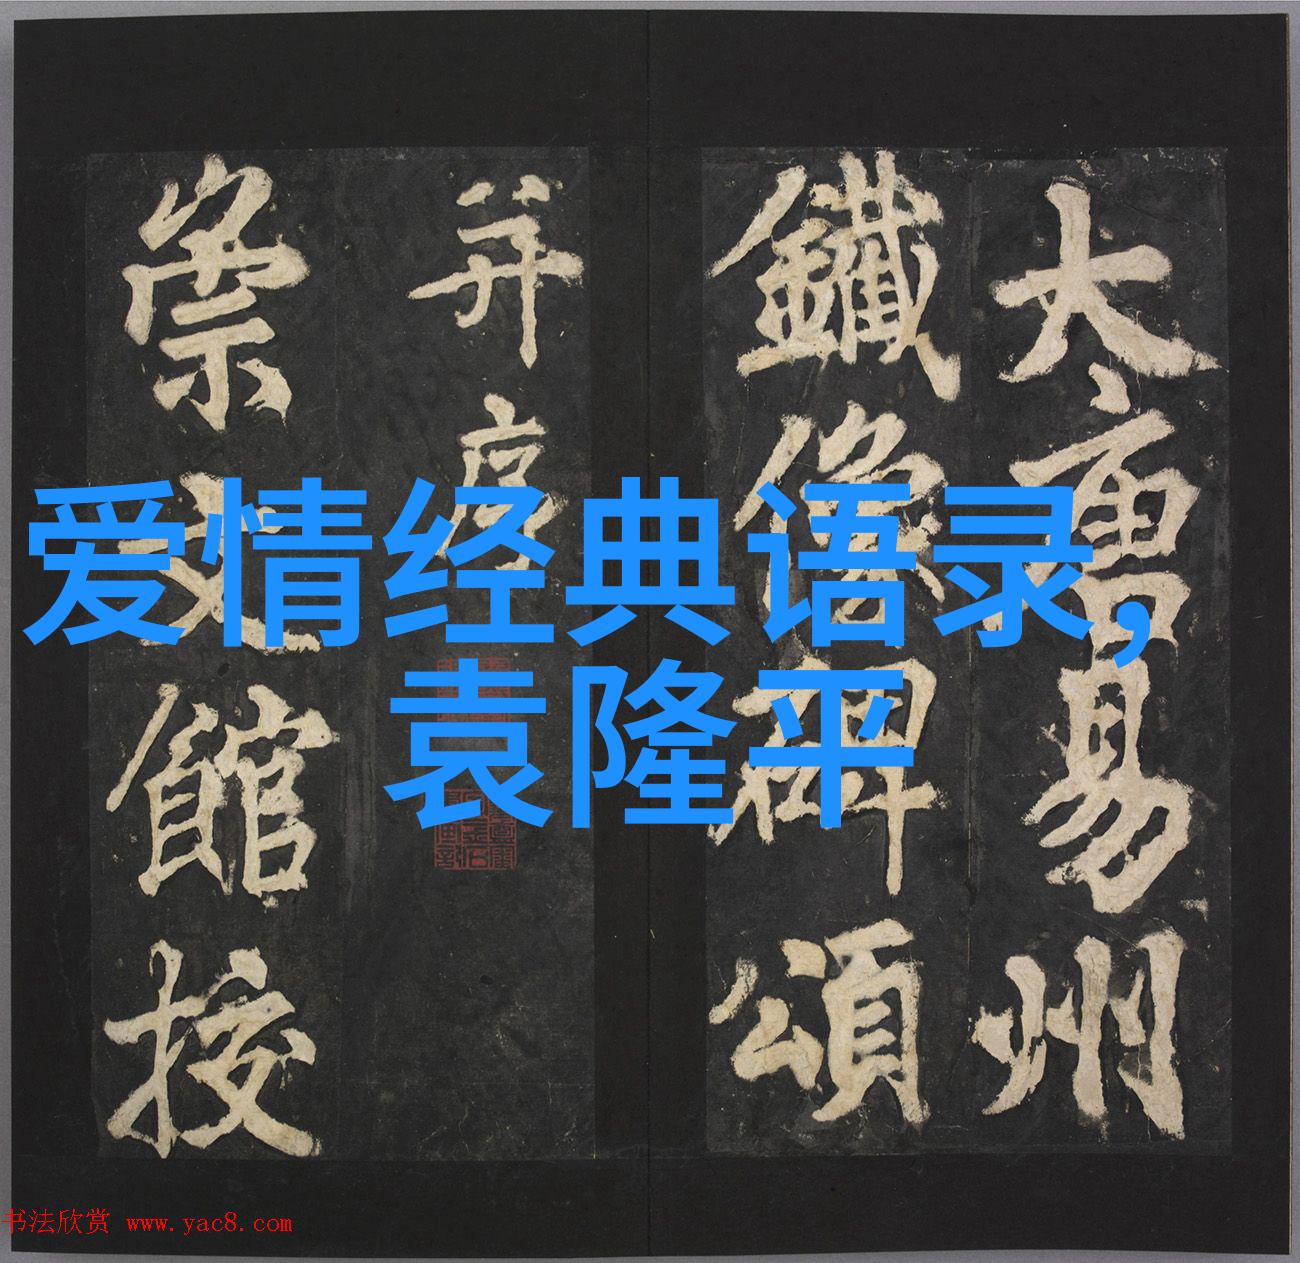 爱情经典语录,
袁隆平
大唐易州
鐵像碑頌
并序
崇文館挍
书法欣赏 www.yac8.com